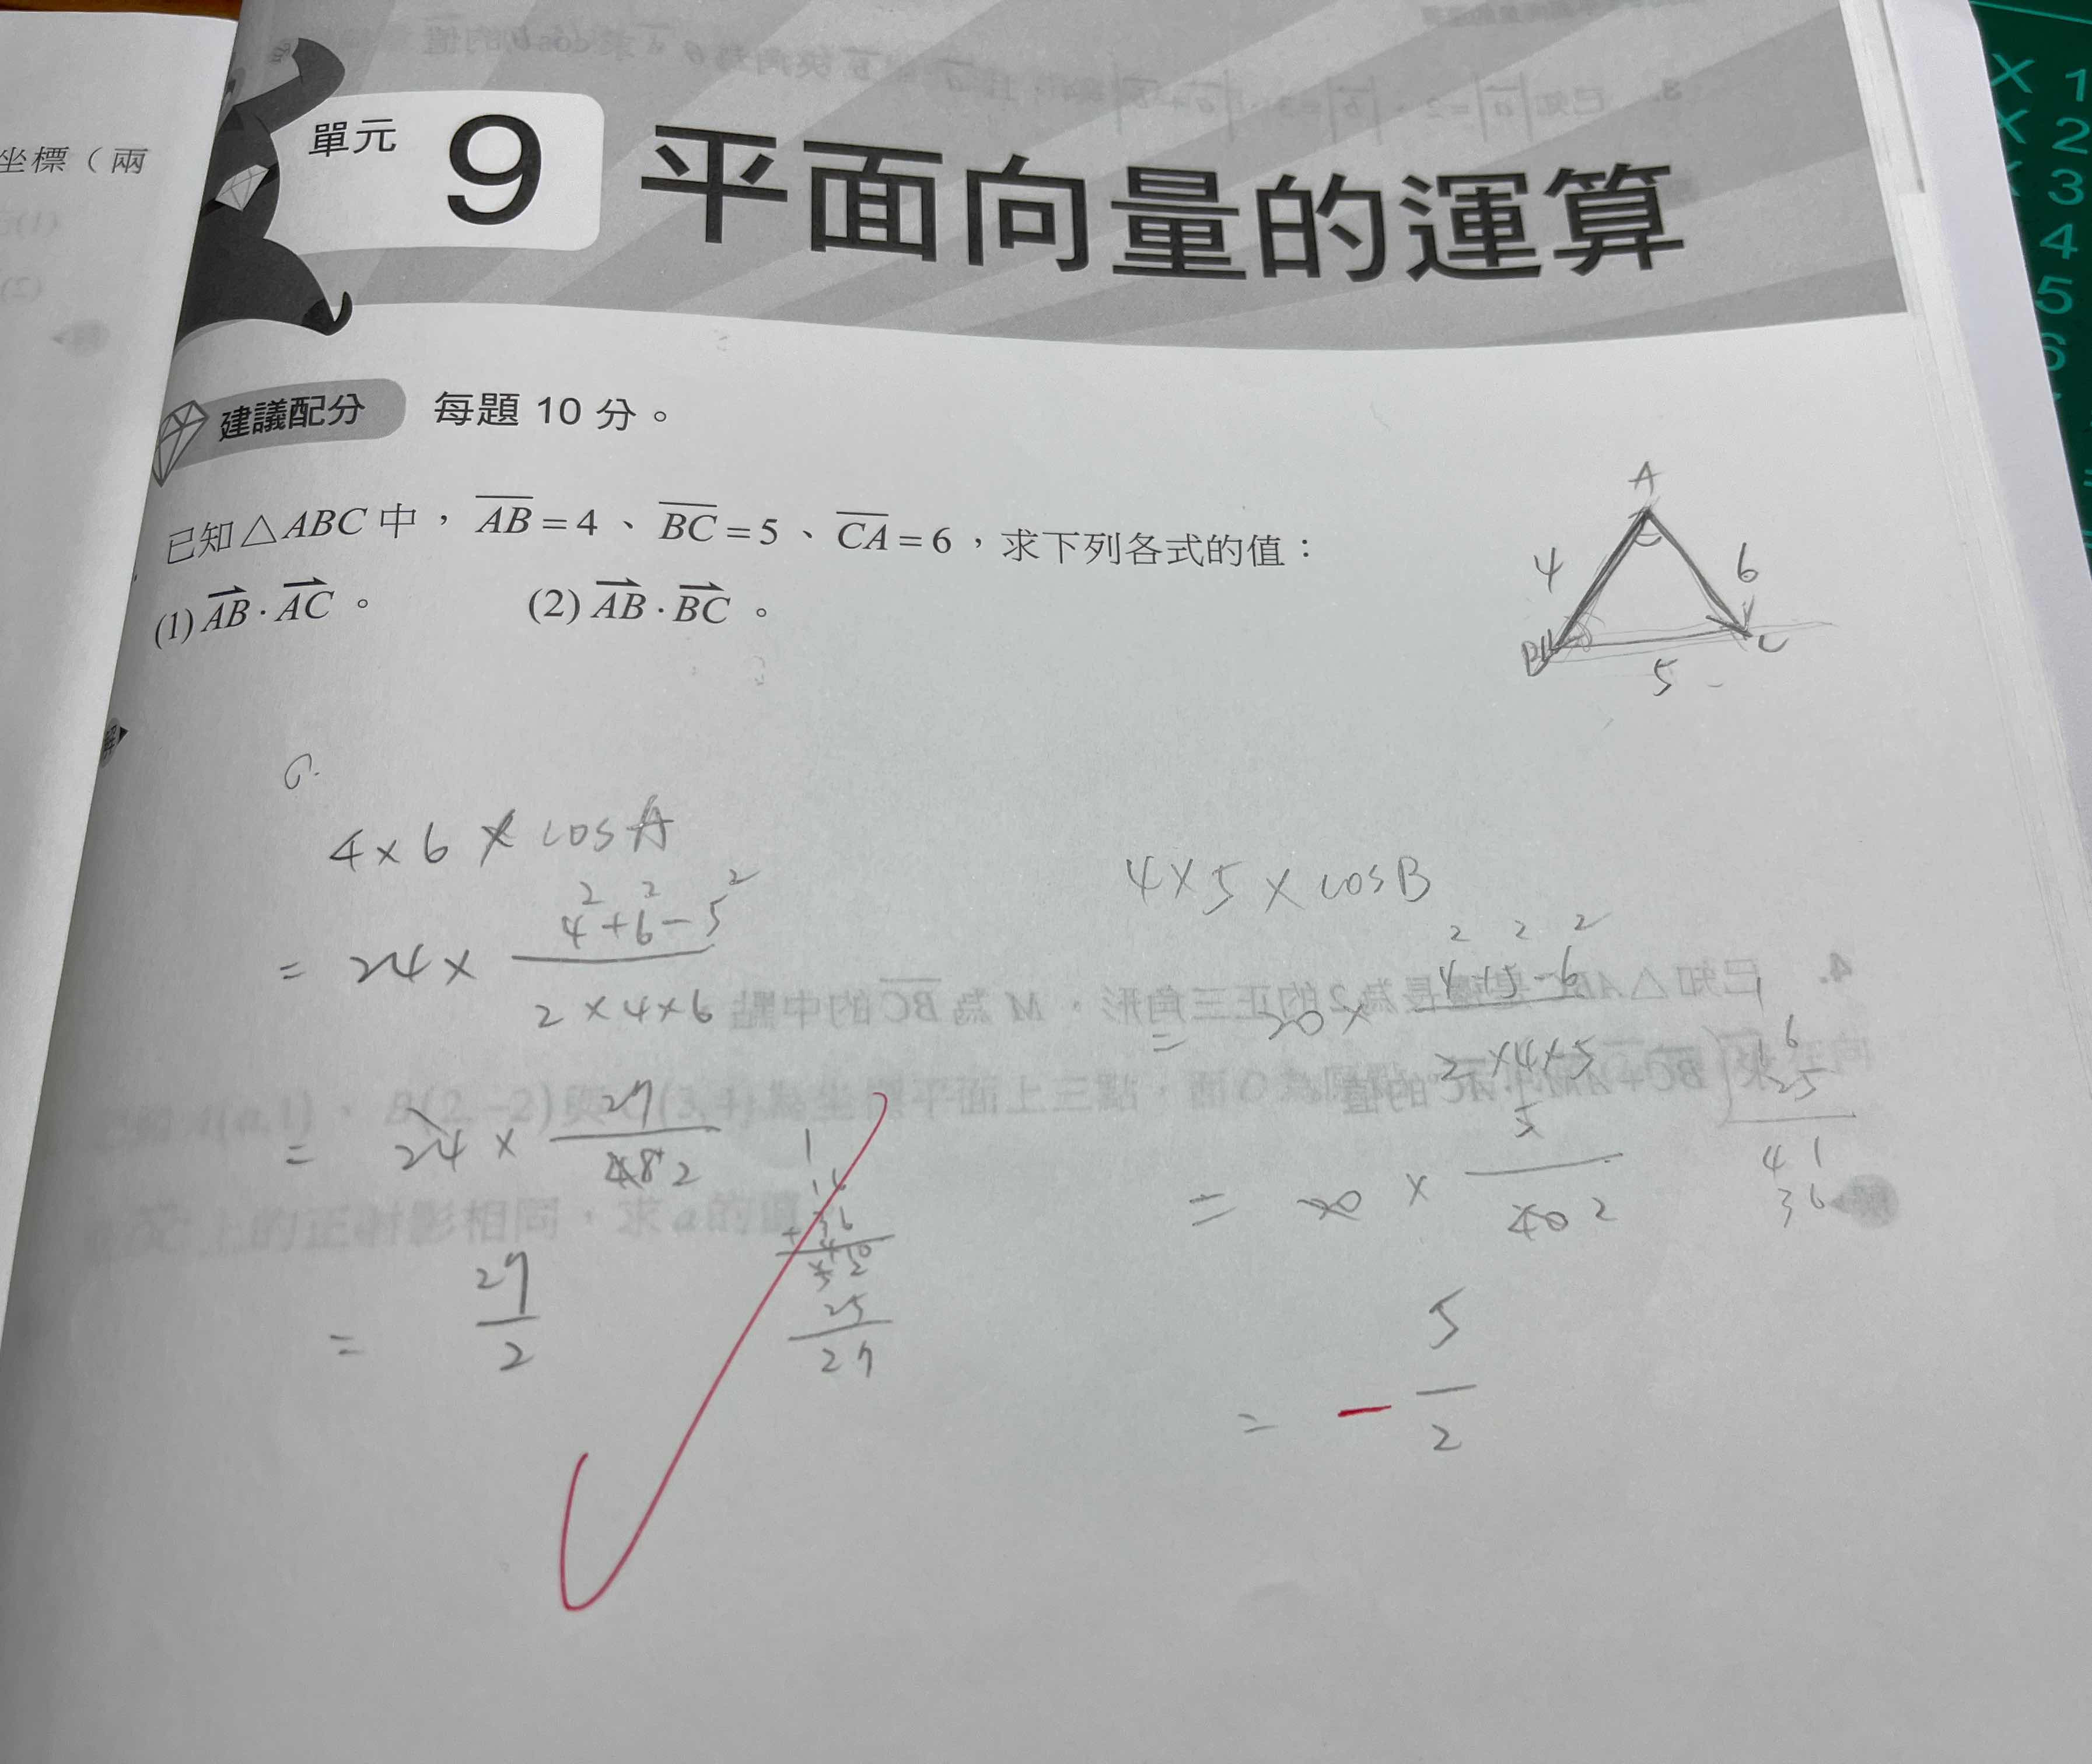 坐標（兩
單元 9 平面向量的運算
建議配分 每題 10 分。
已知△ABC 中， AB=4 、 BC=5 、 CA=6 ，求下列各式的值：
(1) AB · AC 。 (2) AB · BC 。
A
4 6
B C
5
4×6×cosA
= 24× (4²+6²-5²)/(2×4×6)
= 24× 27/48 2
= 27/2
16
+36
52
25
27
4×5×cosB
= 20× (4²+5²-6²)/(2×4×5)
= 20× 5/40 2
= - 5/2
16
25
41
36
X 1
X 2
X 3
4
5
6